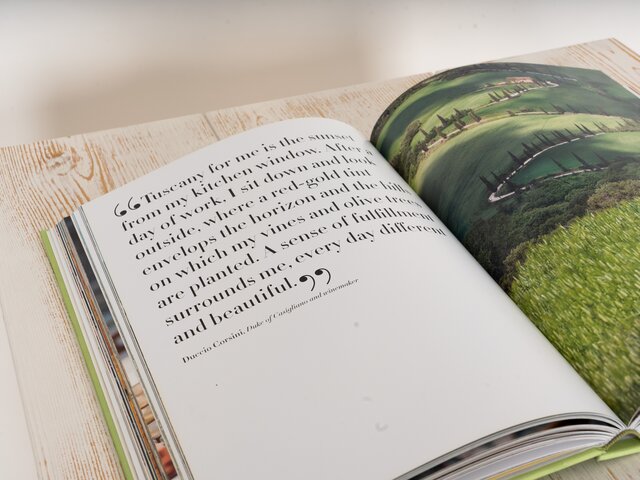 “Tuscany for me is the sunset
from my kitchen window. After a
day of work, I sit down and look
outside, where a red-gold tint
envelops the horizon and the hill
on which my vines and olive trees
are planted. A sense of fulfillment
surrounds me, every day different
and beautiful.”
Duccio Corsini, Duke of Casigliano and winemaker